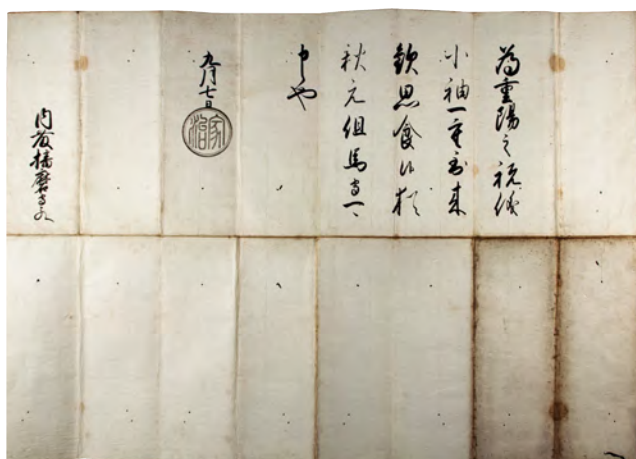 為重陽之祝儀
小袖一重到来
歓思食候猶
秋元但馬守可
申也
九月七日
家治
内藤播磨守とのへ